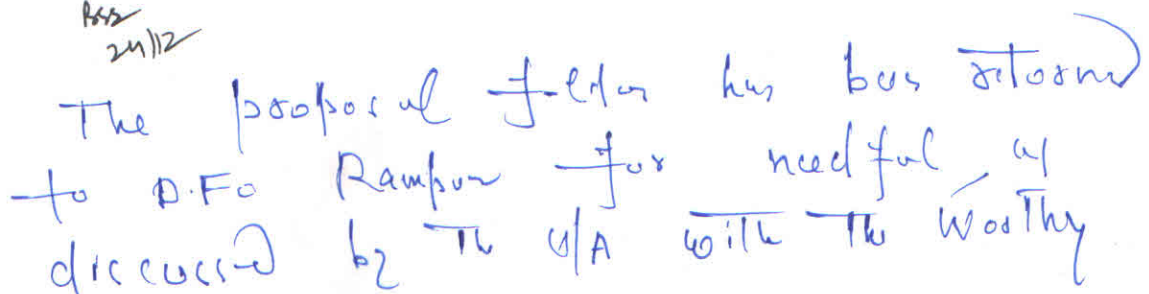 24/12
The proposal folder has been returned
to D.FO Rampur for needful as
discussed by the U/A with the Worthy